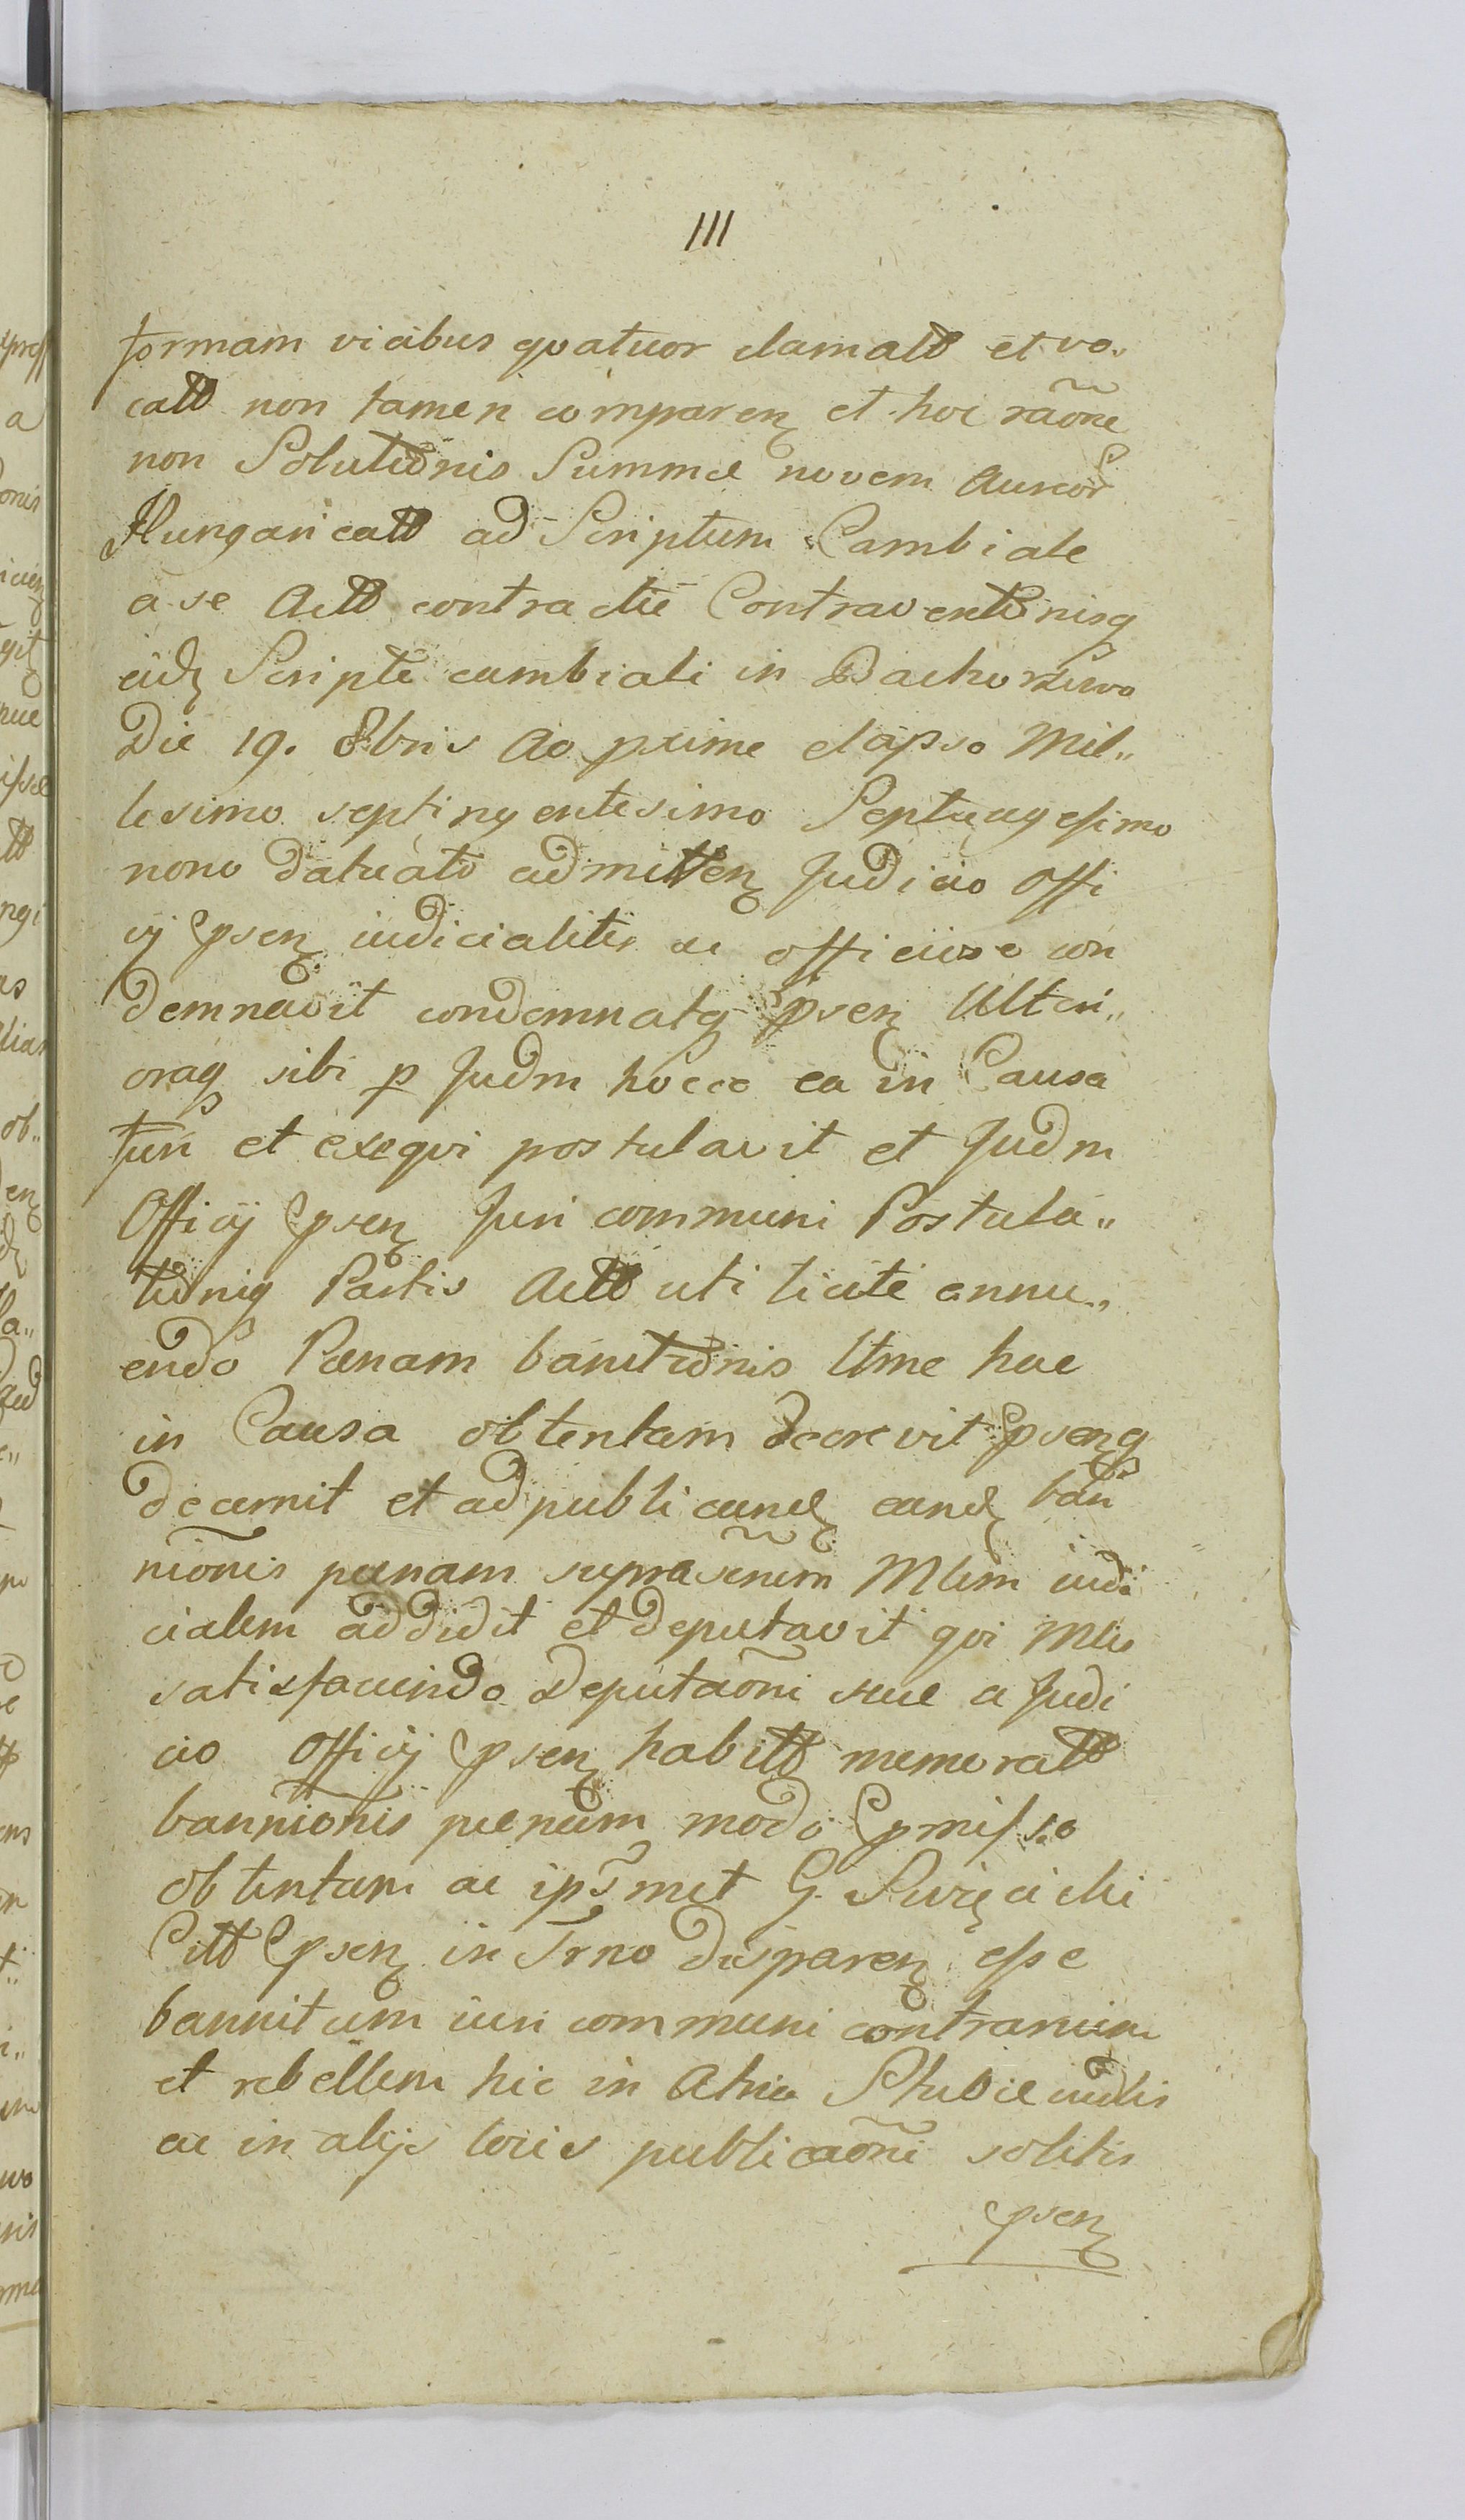 111
formam vicibus quatuor clamatt et vo„
catt non tamen comparen et hoc raõne
non Solutionis Summæ novem Aureor
Hungaricatt ad Scriptum Cambiale
a se Actt contractæ Contraventionisq
eidz Scripto cambiali in Bachorzewo
Die 19. 8bris Ao prime elapso Mil„
lesimo septingentesimo Septuagesimo
nono datuato admitten Judicio Offi
cij psen iudicialiter ac officiose con
demnavit condemnatq psen Ulteri„
oraq sibi p Judm hocce ea in Causa
fieri et exeqvi postulavit et Judm
Officij psen Juri communi Postula„
tioniq Partis Actt uti licite annu„
endo Pænam banitionis Ltmæ hac
in Causa obtentam decrevit psenq
decernit et ad publicand eand ban
nionis pænam suprascñem Mlem iudi
cialem addidit et deputavit qvi Mlis
satisfaciendo deputaoni suæ a Judi
cio Officij psen habitt memoratt
bannionis pænam modo pmisso
obtentam ac ipsmet G. Swięcicki
Citt psen in Trno disparen esse
bannitum iuri communi contrarium
et rebellem hic in Atrio Stubæ iudlis
ac in alijs locis publicaõni solitis
psen